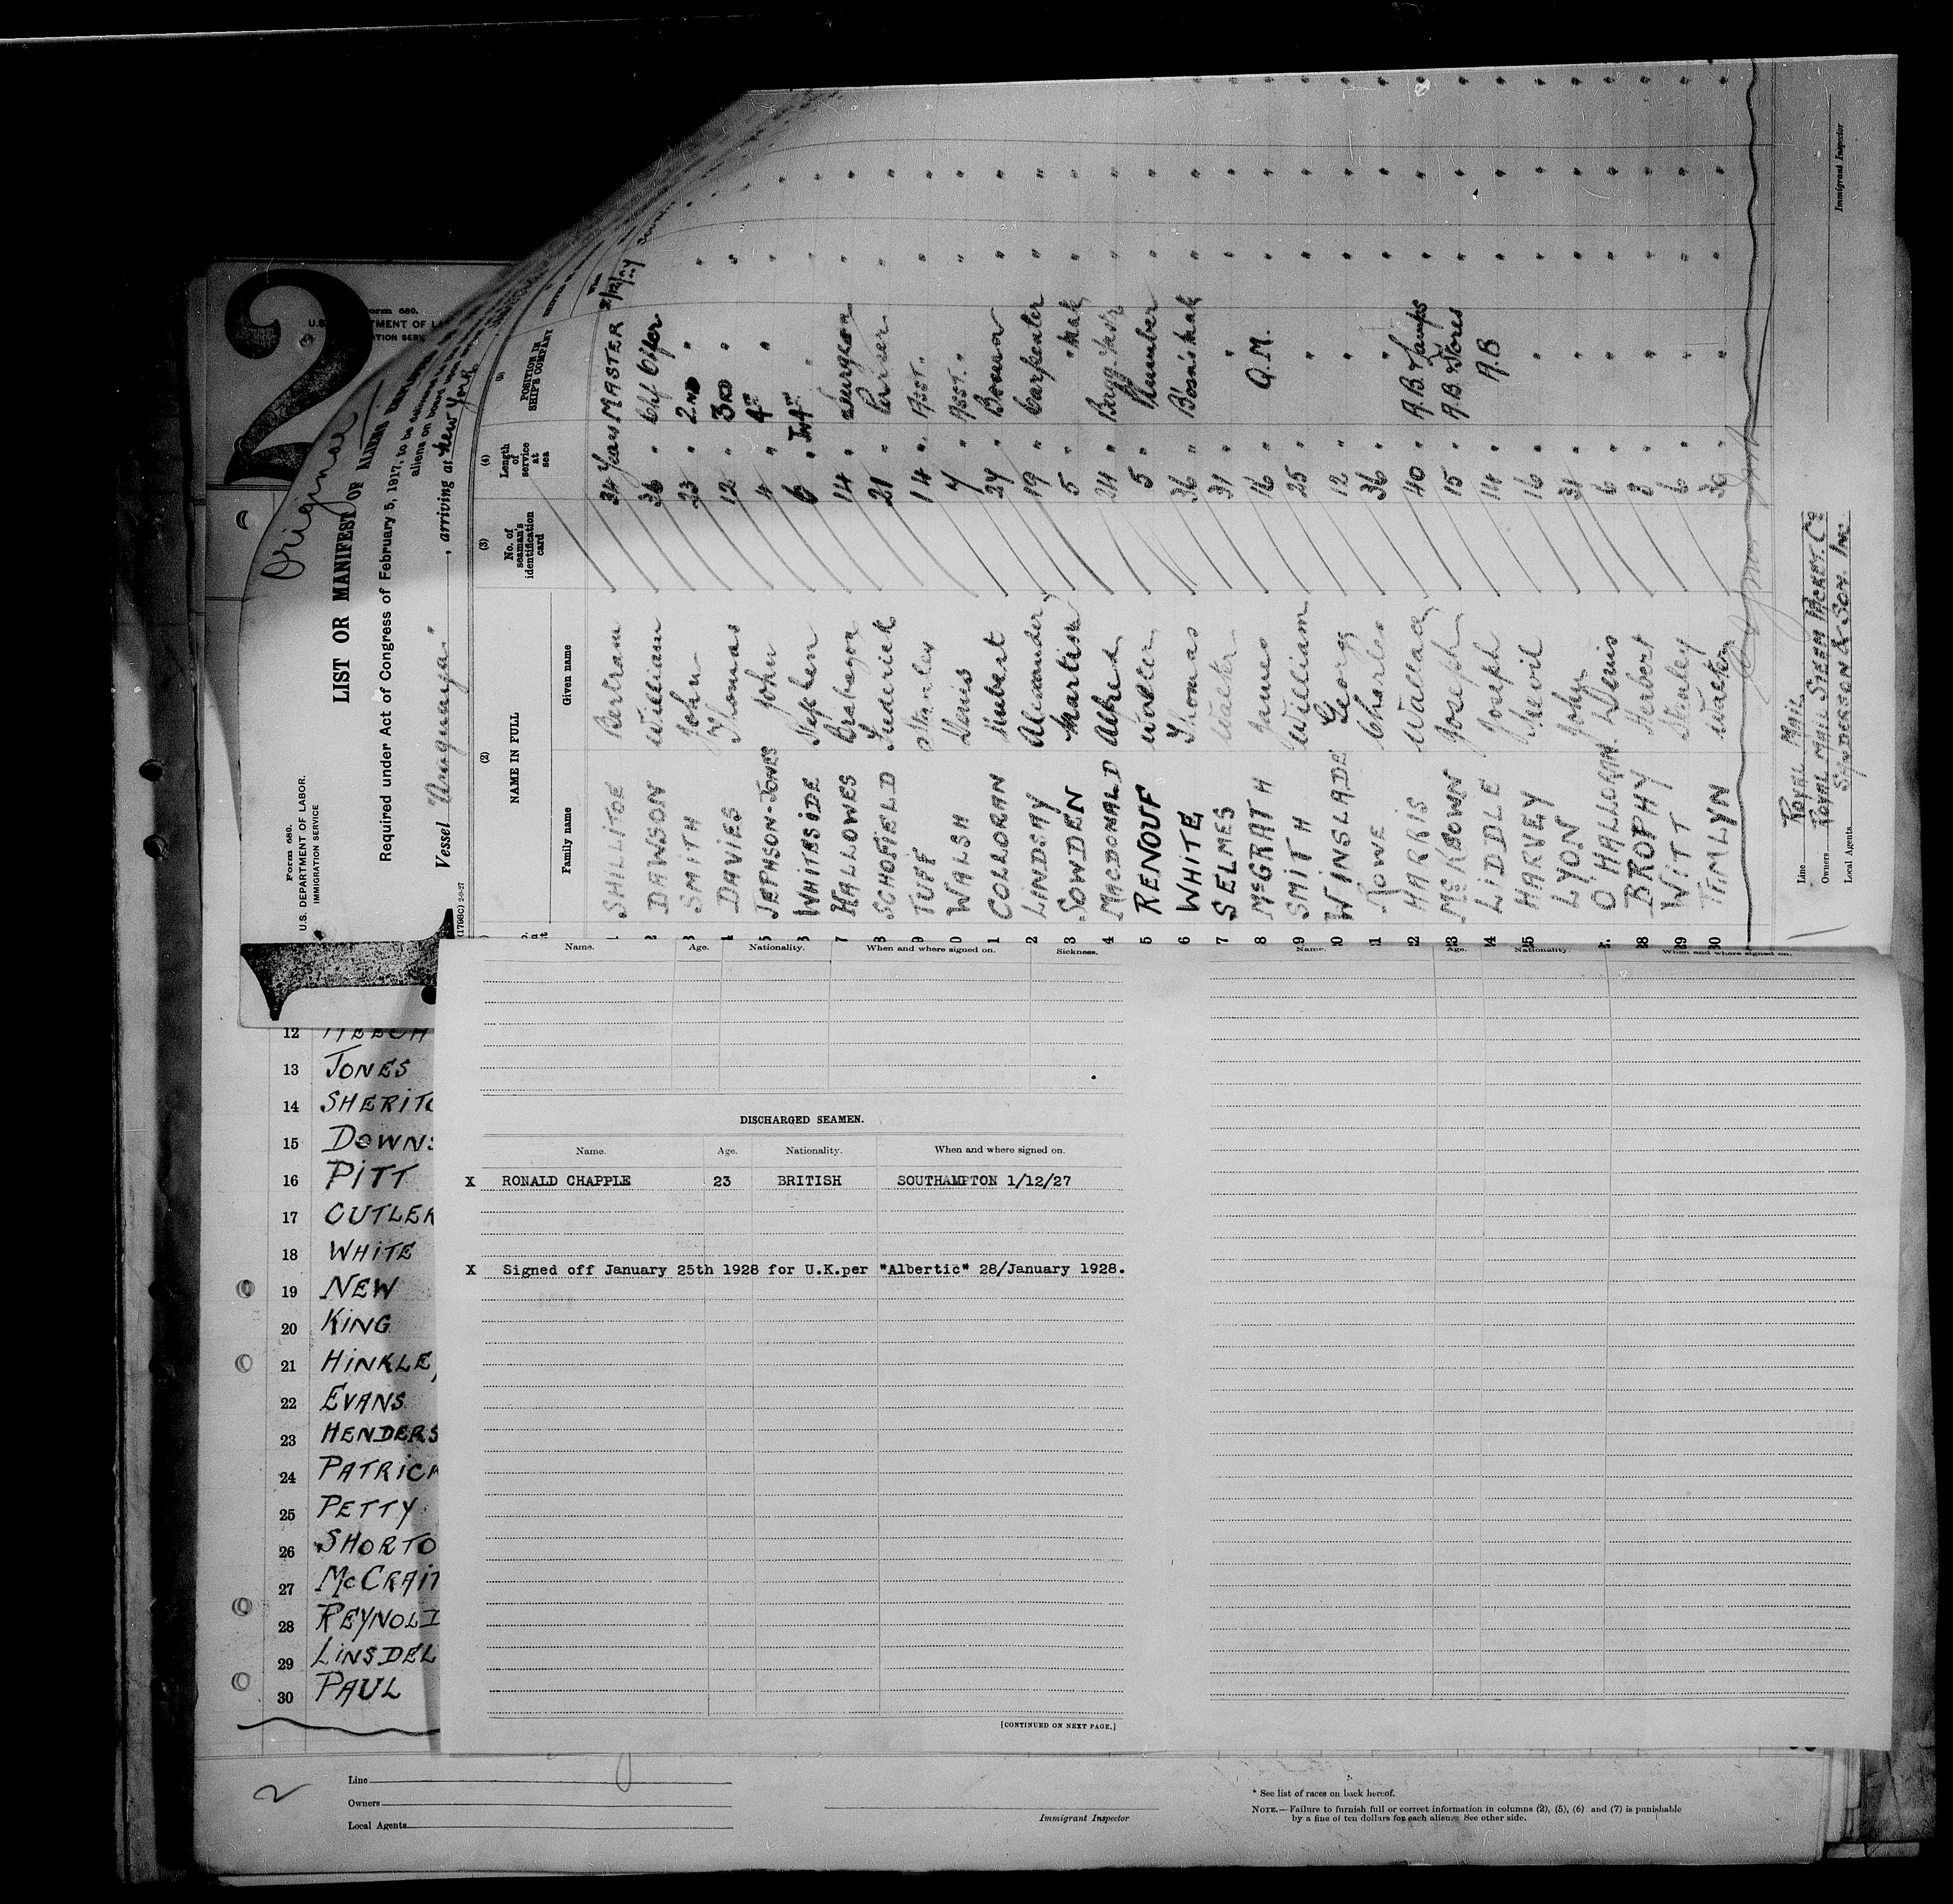 2
Form 680.
Original
Form 680.
U.S. DEPARTMENT OF LABOR.
IMMIGRATION SERVICE
LIST OR MANIFEST OF ALIENS
Required under Act of Congress of February 5, 1917, to be delivered
aliens on board
Vessel "Araguaya" , arriving at New York
(1798C) 2-9-27
(2) (3) (4) (5)
NAME IN FULL No. of seaman's identification card Length of service at sea POSITION IN SHIP'S COMPANY
Family name Given name
1 SHILLITOE Bertram 34 Years MASTER
2 DAWSON William 36 " Chf Offer
3 SMITH John 23 " 2ND "
4 DAVIES Thomas 12 " 3RD "
5 JEPHSON-JONES John 4 " 4TH "
6 WHITESIDE Stephen 6 "
7 HALLOWES Brabazon 14 " Surgeon
8 SCHOFIELD Frederick 21 " Purser
9 TUFF Stanley 14 " ASST. "
0 WALSH Denis 7 " ASST. "
1 COLLORAN Hubert 24 " Bosun
2 LINDSAY Alexander 19 " Carpenter
3 SOWDEN Martin 5 " " Mate
4 MACDONALD Alfred 24 "
5 RENOUF Walter 5 " Plumber
6 WHITE Thomas 36 " Bosns Mate
7 SELMES Walter 31 " "
8 McGRATH James 16 " Q.M.
9 SMITH William 25 " "
0 WINSLADE George 12 " "
1 ROWE Charles 36 " "
2 HARRIS Wallace 40 " A.B. & Lamps
3 McKEOWN Joseph 15 " A.B. & Stores
4 LIDDLE Joseph 14 " A.B
5 HARVEY 16 " "
LYON John 31 " "
7. O'HALLORAN Denis 6 " "
28 BROPHY Herbert 3 " "
29 WITT Stanley 6 " "
30 TIMLYN Martin 30 " "
Line ROYAL MAIL
Owners ROYAL MAIL STEAM PACKET Co
Local Agents SANDERSON & SON. Inc
Immigrant Inspector
Name. Age. Nationality. When and where signed on. Sickness.
Name. Age. Nationality. When and where signed on.
DISCHARGED SEAMEN.
Name. Age. Nationality. When and where signed on.
X RONALD CHAPPLE 23 BRITISH SOUTHAMPTON 1/12/27
X Signed off January 25th 1928 for U.K.per "Albertic" 28/January 1928.
[CONTINUED ON NEXT PAGE.]
12
13 JONES
14 SHERITO
15 DOWNS
16 PITT
17 CUTLER
18 WHITE
19 NEW
20 KING
21 HINKLE
22 EVANS
23 HENDERS
24 PATRICK
25 PETTY
26 SHORTO
27 McCRAIT
28 REYNOLD
29 LINSDEL
30 PAUL
2
Line
Owners
Local Agents
Immigrant Inspector
* See list of races on back hereof.
NOTE.—Failure to furnish full or correct information in columns (2), (5), (6) and (7) is punishable
by a fine of ten dollars for each alien. See other side.